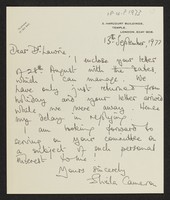 2, HARCOURT BUILDINGS,
TEMPLE,
LONDON, EC4Y 9DB.
13th September, 1977
Dear Dr. Lawrie
I enclose your letter
of 28th August with the dates
which I can manage. We
have only just returned from
holiday and your letter arrived
while we were away, hence
my delay in replying.
I am looking forward to
serving your committee on
a subject of such personal
interest to me.
Yours sincerely
Sheila Cameron